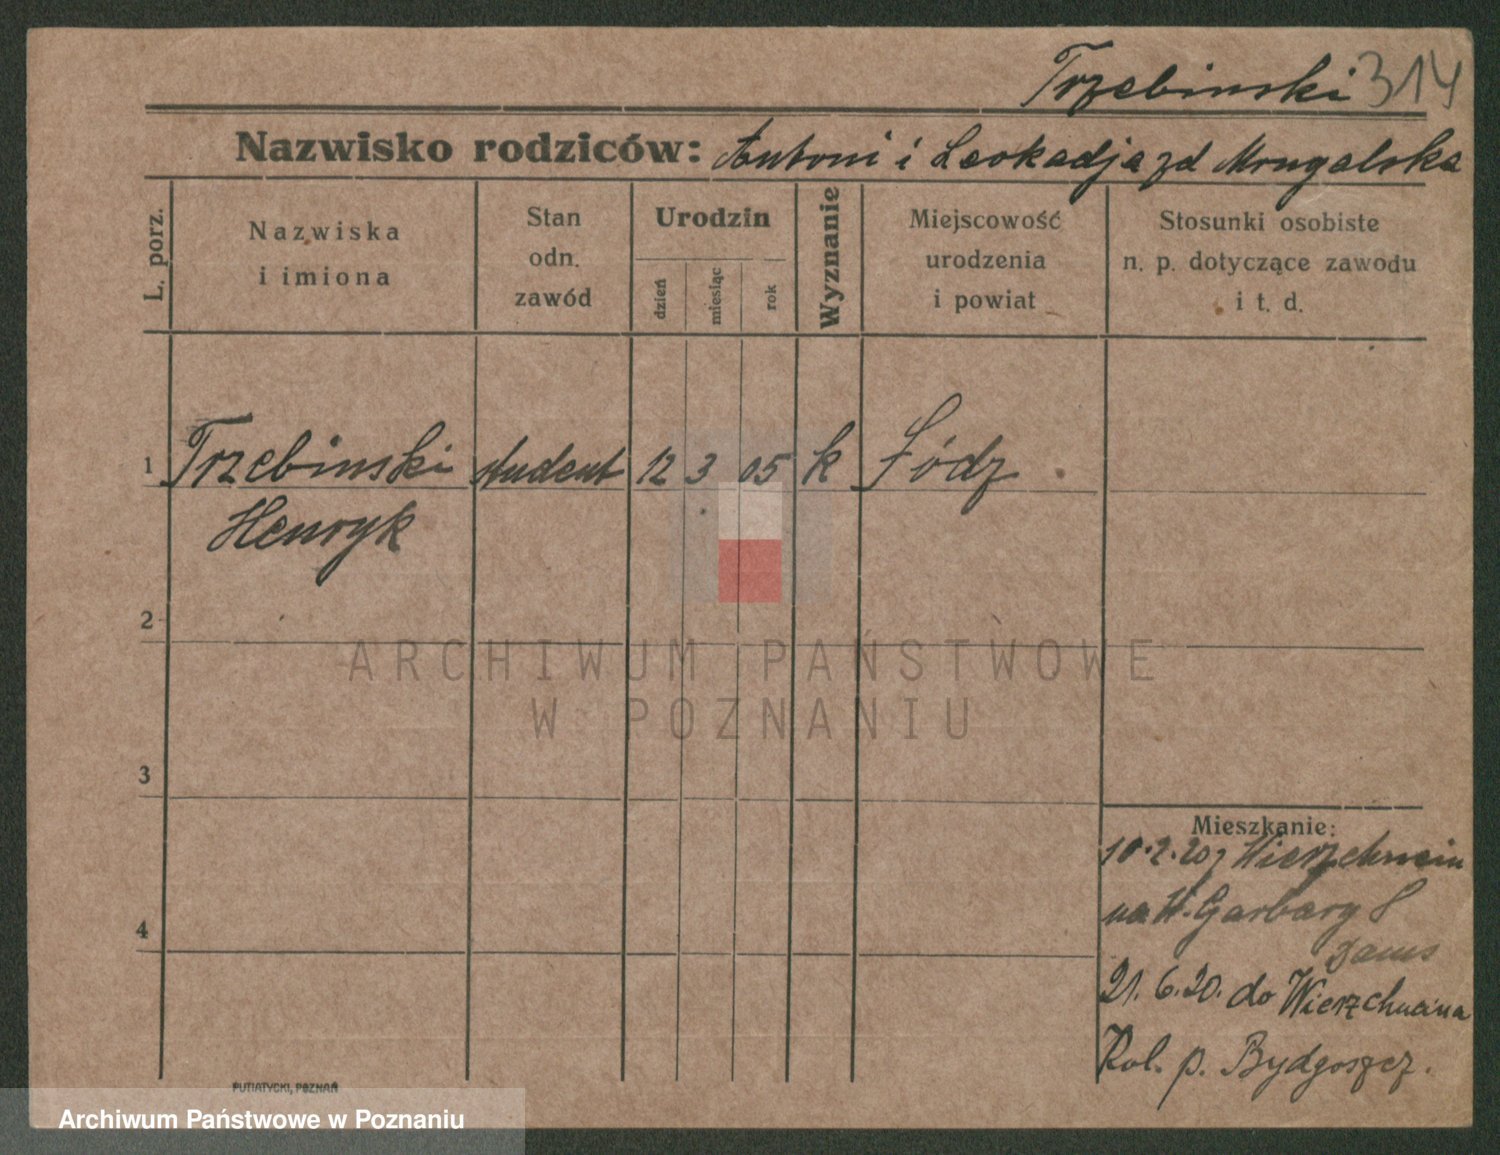 Trzebinski 314
Nazwisko rodziców: Antoni i Leokadja zd Mrugalska
L. porz.
Nazwiska
i imiona
Stan
odn.
zawód
Urodzin
dzień
miesiąc
rok
Wyznanie
Miejscowość
urodzenia
i powiat
Stosunki osobiste
n. p. dotyczące zawodu
i t. d.
1 Trzebinski student 12 3 05 k Łódz
Henryk
2
3
4
ARCHIWUM PAŃSTWOWE
W POZNANIU
Mieszkanie:
10.2.20 z Wierzchucin
na W. Garbary 8
Janus
21.6.20. do Wierzchucina
Kol. p. Bydgoszcz.
PUTIATYCKI, POZNAŃ
Archiwum Państwowe w Poznaniu